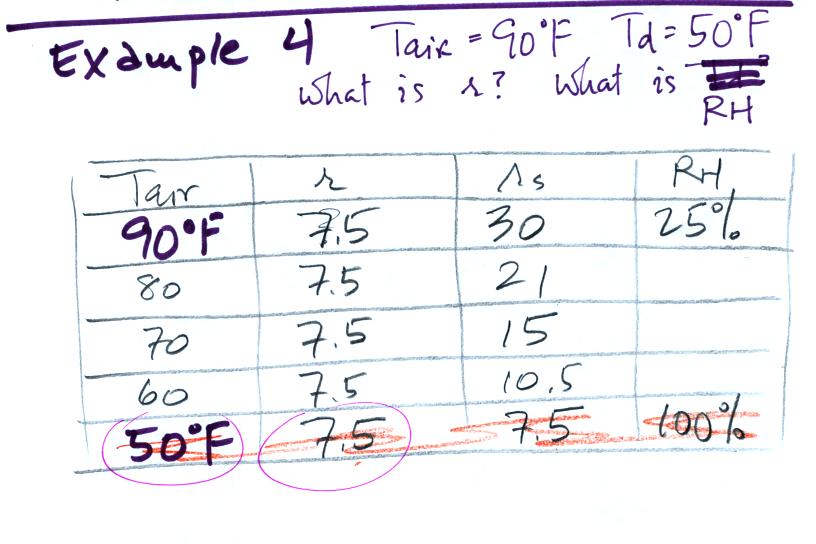 Example 4 Tair = 90°F Td = 50°F
what is r? what is
RH
Tair r rs RH
90°F 7.5 30 25%
80 7.5 21
70 7.5 15
60 7.5 10.5
50°F 7.5 7.5 100%